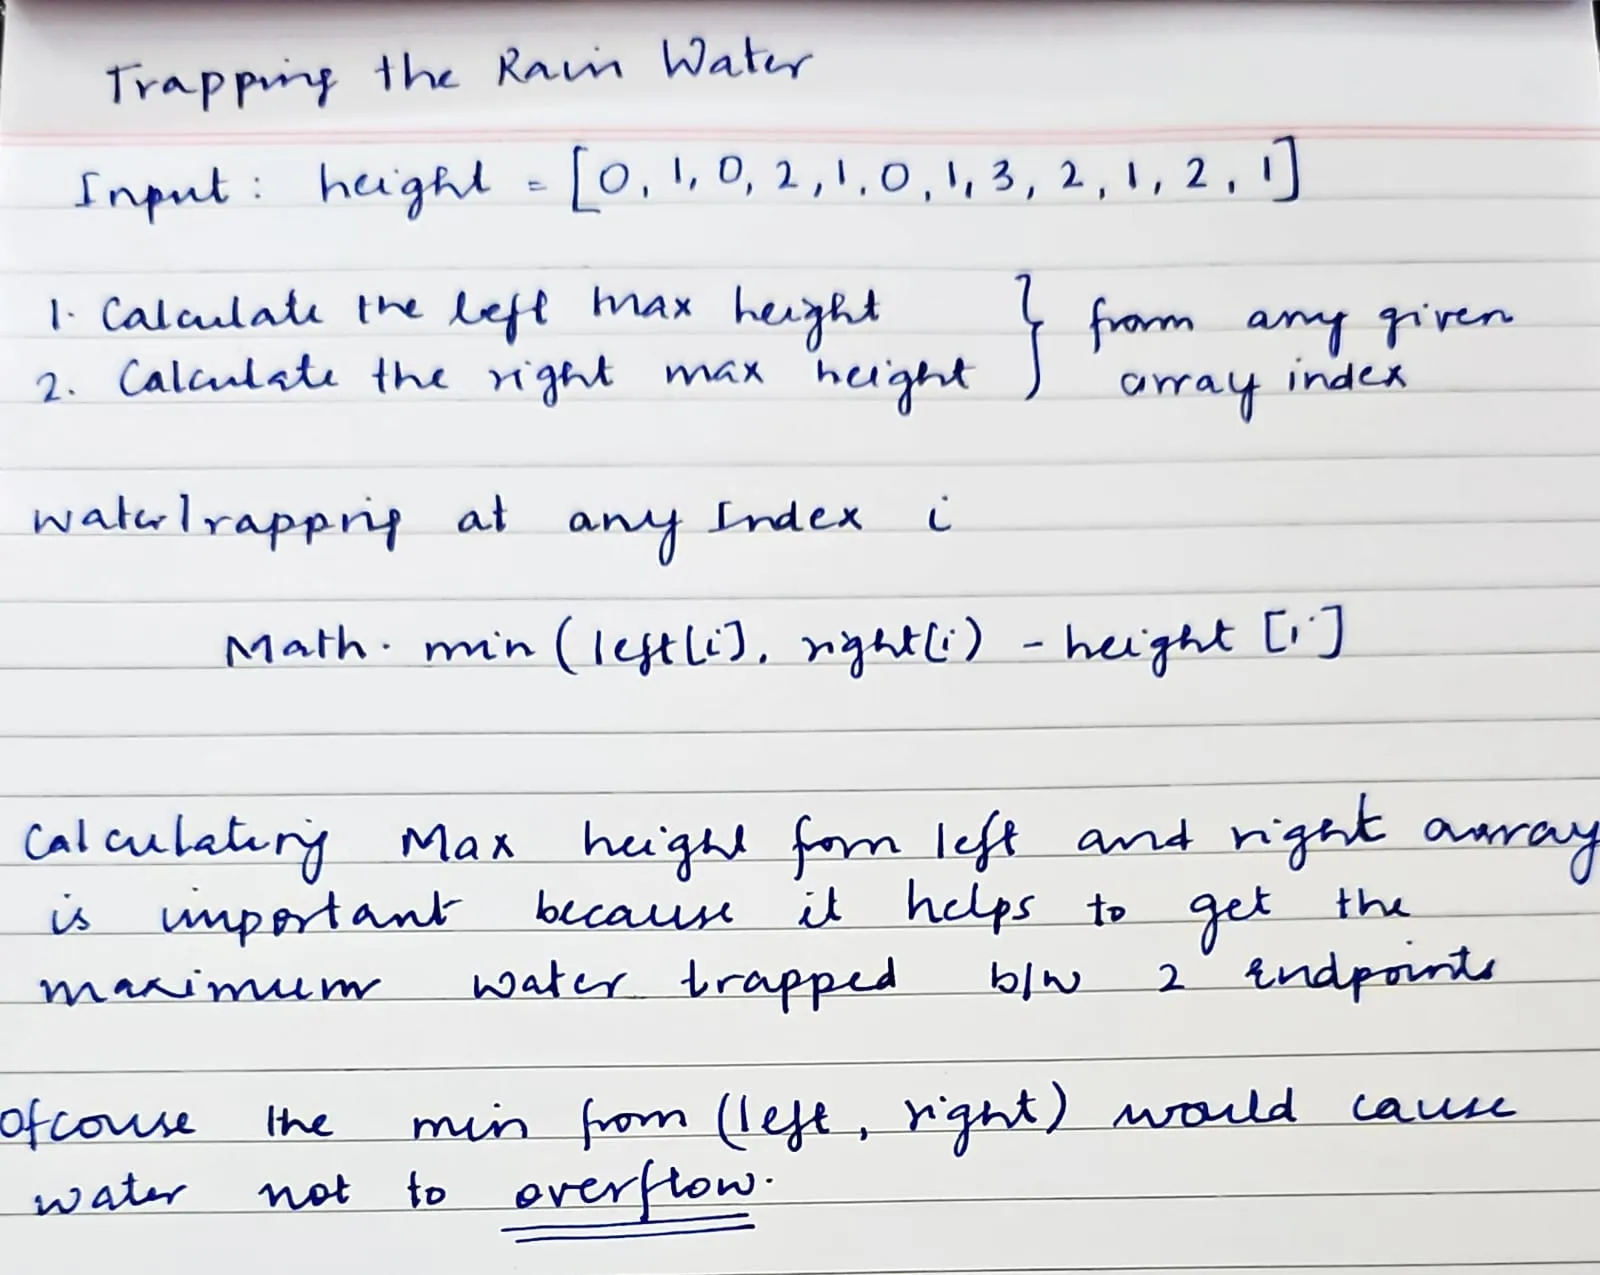 Trapping the Rain Water
Input: height = [0, 1, 0, 2, 1, 0, 1, 3, 2, 1, 2, 1]
1. Calculate the left max height } from any given
2. Calculate the right max height } array index
waterTrapping at any Index i
Math. min (left[i], right[i) - height [i]
Calculating Max height form left and right array
is important because it helps to get the
maximum water trapped b/w 2 Endpoints
Ofcouse the min from (left, right) would cause
water not to overflow.